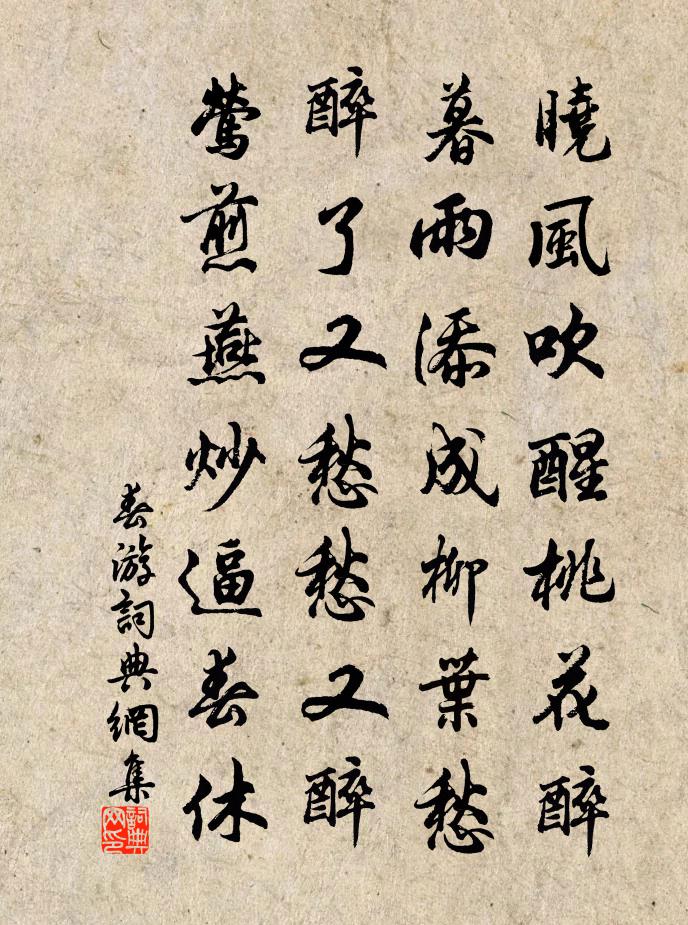 曉風吹醒桃花醉
暮雨添成柳葉愁
醉了又愁愁又醉
鶯煎燕炒逼春休
春游詞典網集
詞典
网印